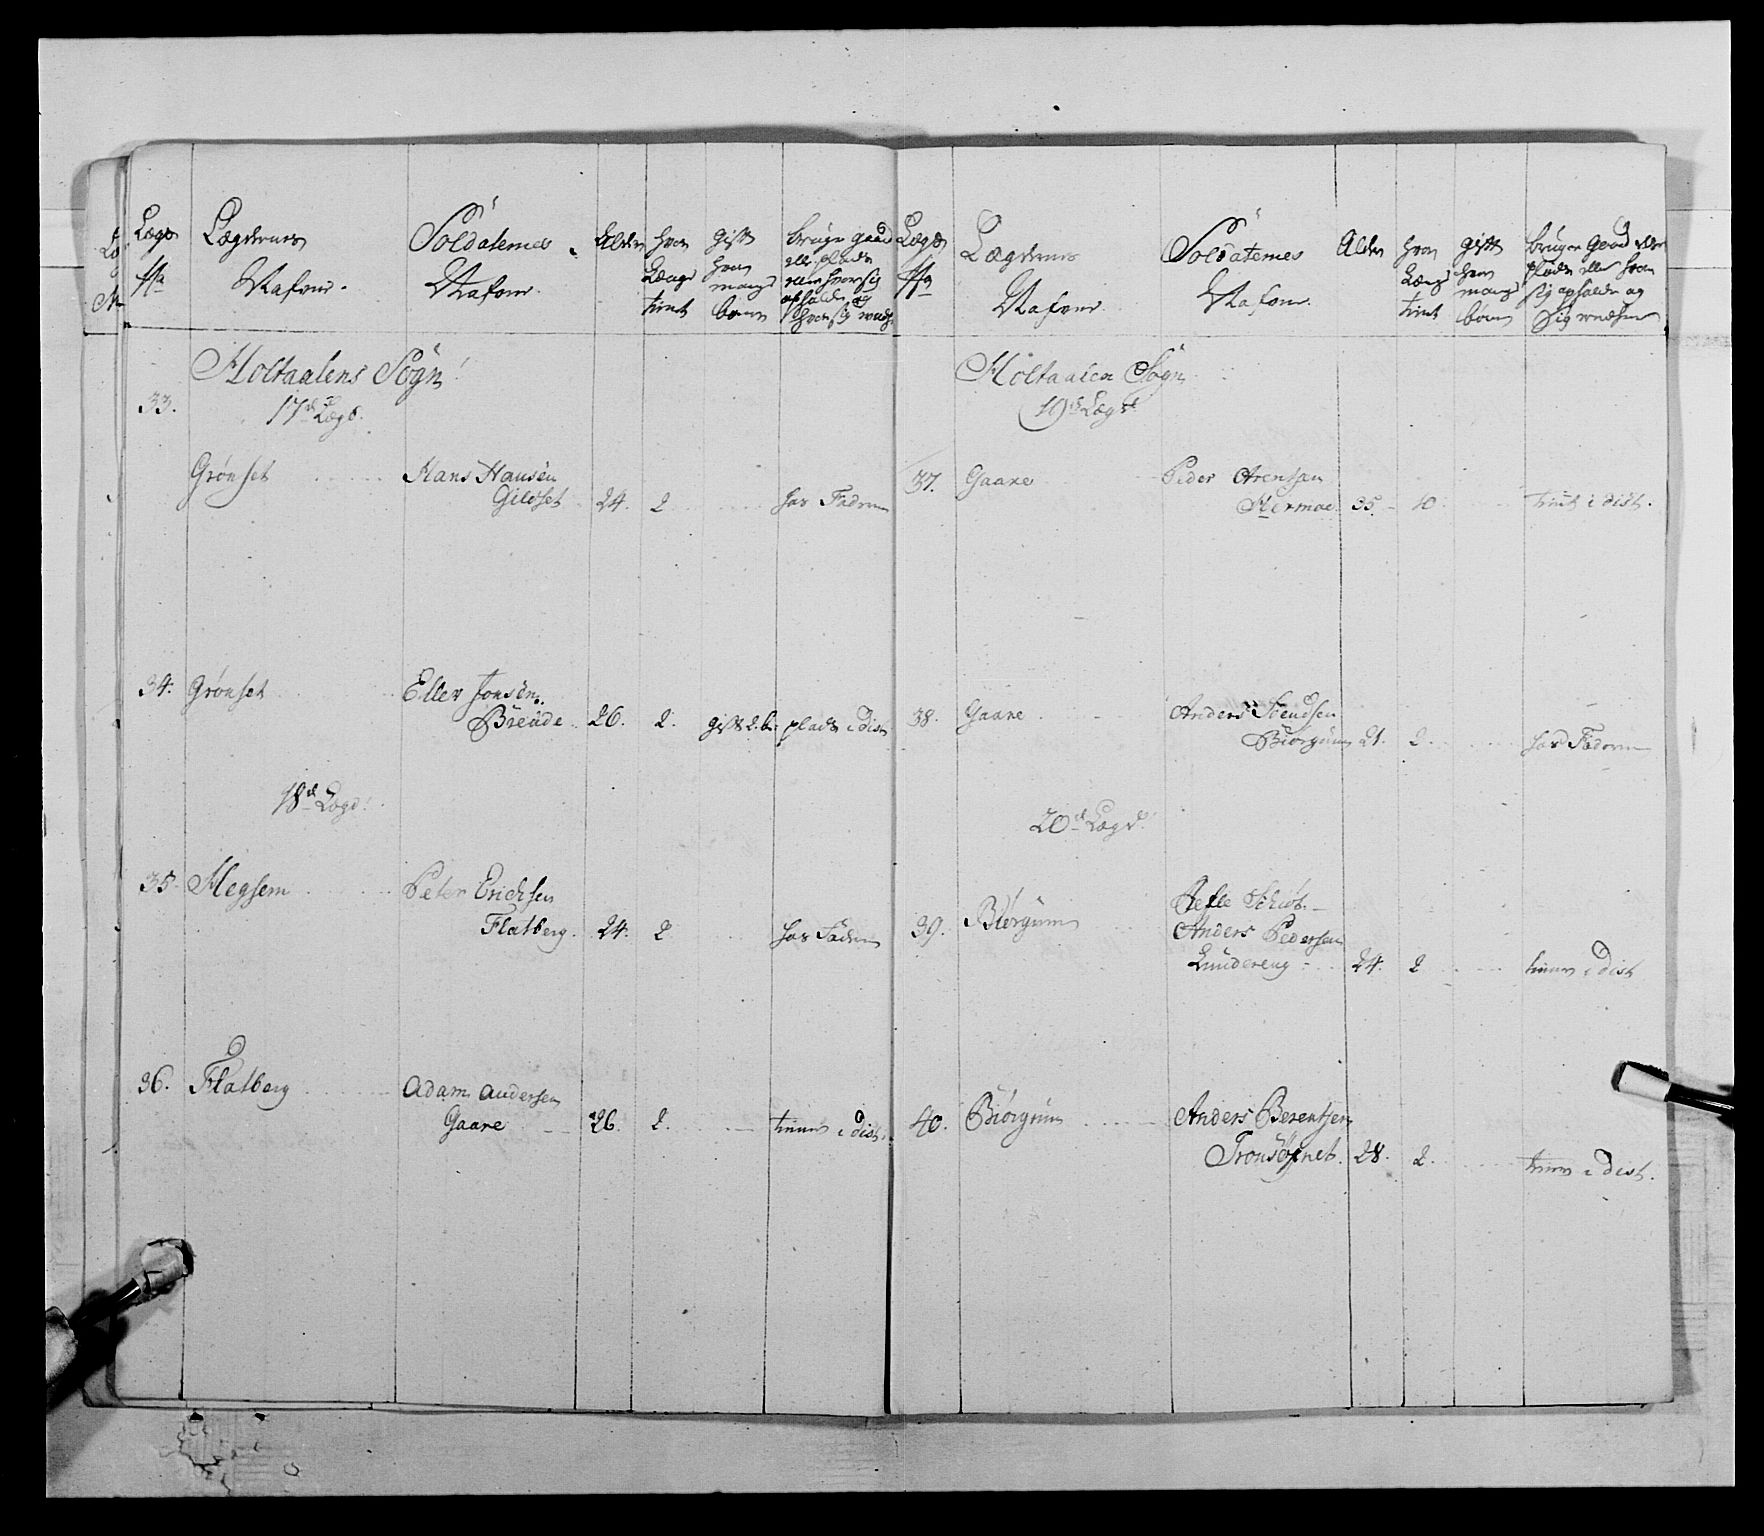 Lægs
No
Lægdernes
Nafne.
Soldaternes
Nafne.
Alder
hvor
Længe
tient
gift
hvor
mange
børn
bruger gaard
eller plads
eller hvor sig
opholde og
hvor sig
33.
Holtaalens Sogn
17de Lægd.
Grønset
Hans Hansen
Gildset 24. 2 hos Faderen
34. Grønset
Eller Jonsen
Brende 26. 2. gift 2. b. plads i Dist
18de Lægd.
35. Hegsem
Peter Erichsen
Flatberg. 24. 2 hos Faderen
36. Flatberg
Adam Andersen
Gaare 26. 2. tiener i Dist.
Lægs
No
Lægdernes
Nafne.
Soldaternes
Nafne.
Alder
hvor
Længe
tient
gift
hvor
mange
børn
bruger Gaard eller
plads eller hvor
sig opholde og
Sig
Holtaalen Sogn
19de Lægd
37. Gaare
Peder Arentsen
Hermoe. 35. 10. tient i Dist.
38. Gaare
Anders Svendsen
Biørgum 21. 2. hos Faderen
20de Lægd.
39. Biørgum
Anders Pedersen
Lundereng 24. 2 tiener i Dist
40. Biørgum
Anders Berentsen
28. 2. tiener i Dist.